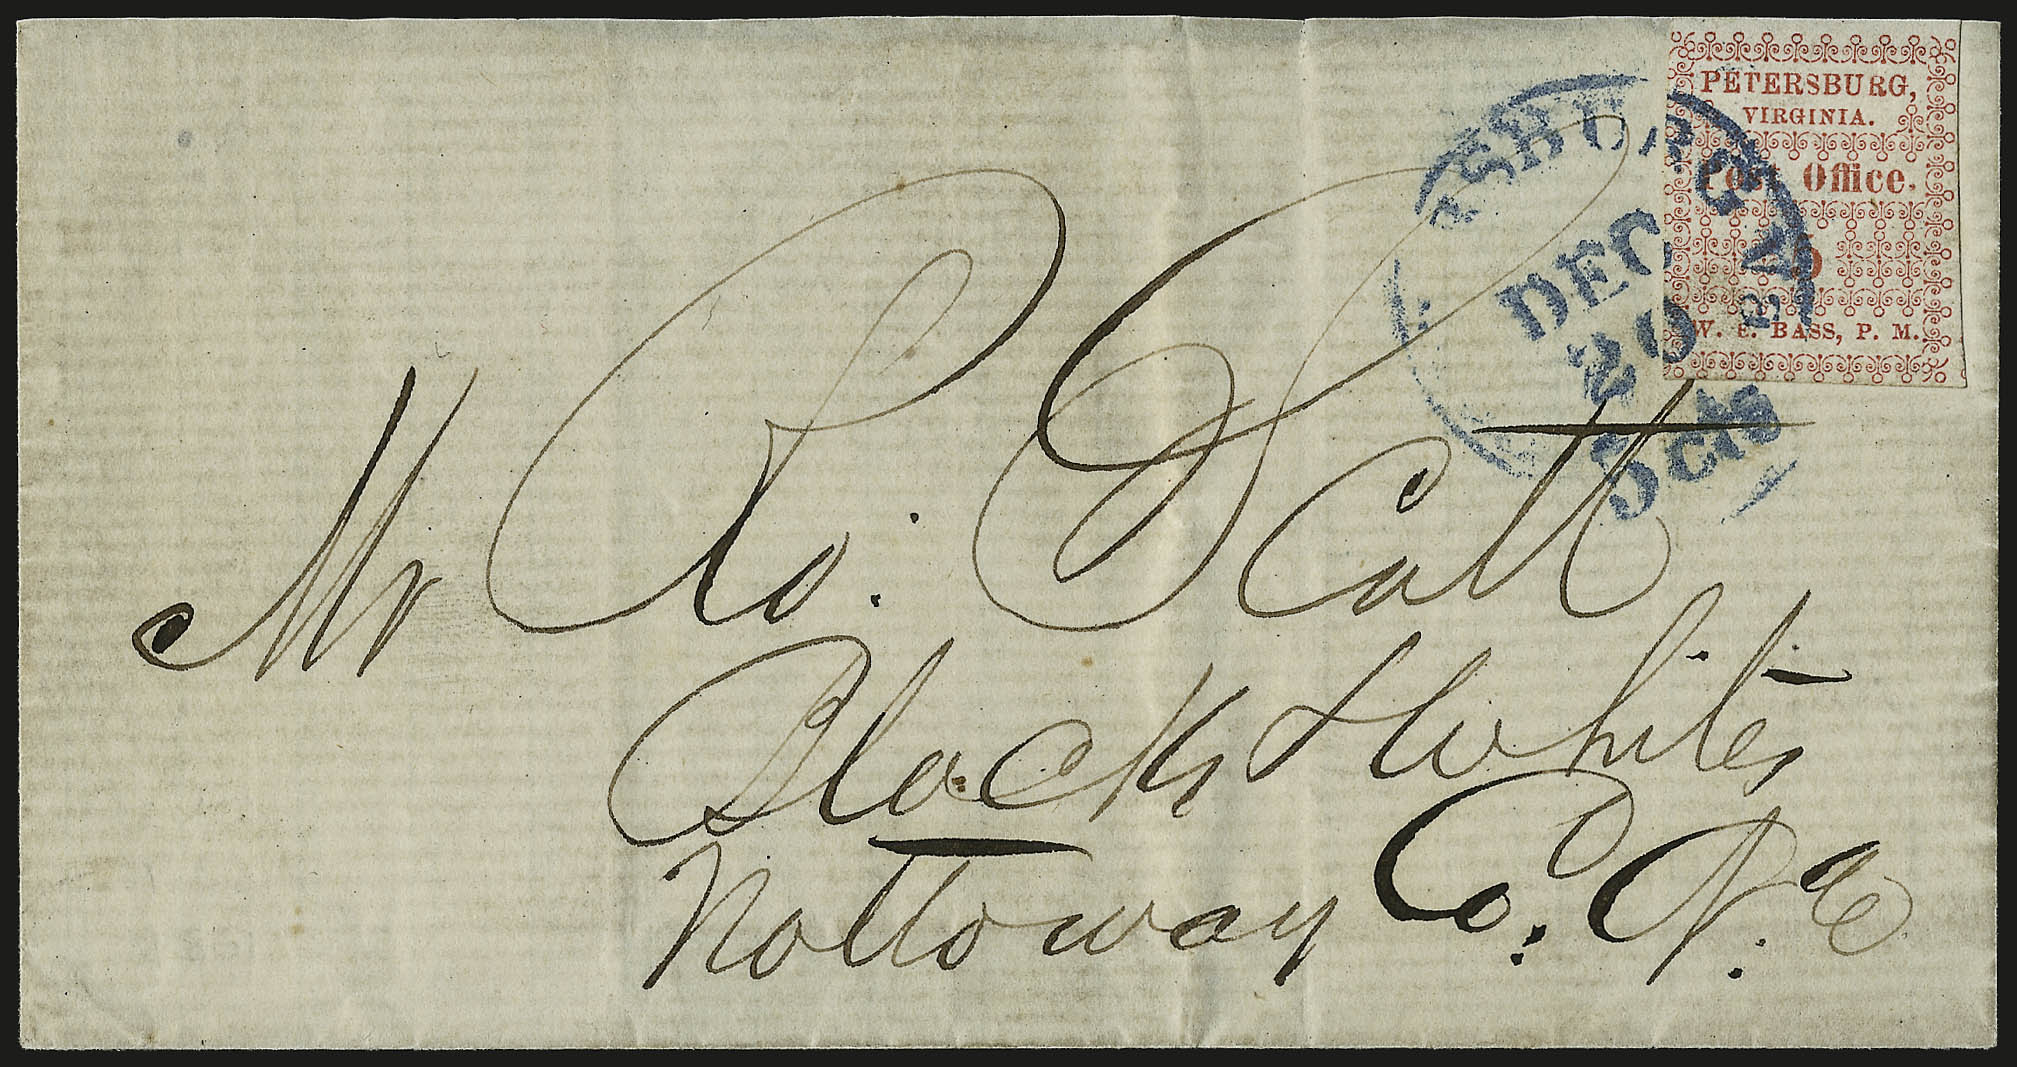 PETERSBURG,
VIRGINIA.
Post Office.
5
W. E. BASS, P. M.
RSBURG VA
DEC
20
5cts
Mr Ro. Scott
Blacks & Whites
Nottoway Co. Va